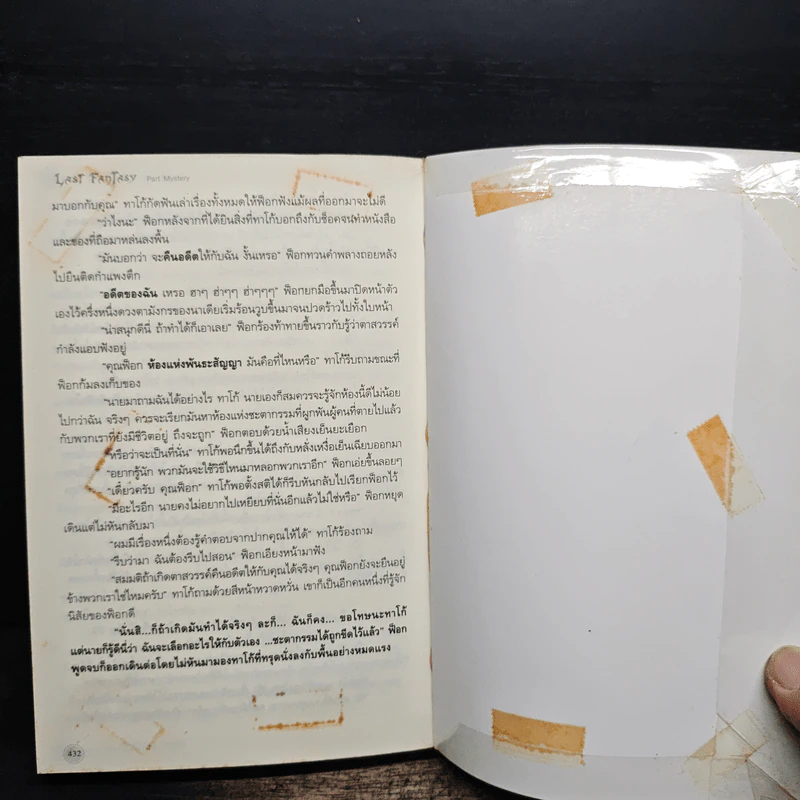 LAST FANTASY Part Mystery
มาบอกกับคุณ" ทาโก้กัดฟันเล่าเรื่องทั้งหมดให้ฟ็อกฟังแม้ผลที่ออกมาจะไม่ดี
"ว่าไงนะ" ฟ็อกหลังจากที่ได้ยินสิ่งที่ทาโก้บอกถึงกับช็อคจนทำหนังสือ
และของที่ถือมาหล่นลงพื้น
"มันบอกว่า จะคืนอดีตให้กับฉัน งั้นเหรอ" ฟ็อกทวนคำพลางถอยหลัง
ไปยืนติดกำแพงตึก
"อดีตของฉัน เหรอ ฮาๆ ฮ่าๆๆ ฮ่าๆๆๆ" ฟ็อกยกมือขึ้นมาปิดหน้าตัว
เองไว้ครึ่งหนึ่งดวงตามังกรของนาเดียเริ่มร้อนวูบขึ้นมาจนปวดร้าวไปทั้งใบหน้า
"น่าสนุกดีนี่ ถ้าทำได้ก็เอาเลย" ฟ็อกร้องท้าทายขึ้นราวกับรู้ว่าตาสวรรค์
กำลังแอบฟังอยู่
"คุณฟ็อก ห้องแห่งพันธะสัญญา มันคือที่ไหนหรือ" ทาโก้รีบถามขณะที่
ฟ็อกก้มลงเก็บของ
"นายมาถามฉันได้อย่างไร ทาโก้ นายเองก็สมควรจะรู้จักห้องนี้ดีไม่น้อย
ไปกว่าฉัน จริงๆ ควรจะเรียกมันหาห้องแห่งชะตากรรมที่ผูกพันผู้คนที่ตายไปแล้ว
กับพวกเราที่ยังมีชีวิตอยู่ ถึงจะถูก" ฟ็อกตอบด้วยน้ำเสียงเย็นยะเยือก
"หรือว่าจะเป็นที่นั่น" ทาโก้พอนึกขึ้นได้ถึงกับหลั่งเหงื่อเย็นเฉียบออกมา
"อยากรู้นัก พวกมันจะใช้วิธีไหนมาหลอกพวกเราอีก" ฟ็อกเอ่ยขึ้นลอยๆ
"เดี๋ยวครับ คุณฟ็อก" ทาโก้พอตั้งสติได้ก็รีบหันกลับไปเรียกฟ็อกไว้
"มีอะไรอีก นายคงไม่อยากไปเหยียบที่นั่นอีกแล้วไม่ใช่หรือ" ฟ็อกหยุด
เดินแต่ไม่หันกลับมา
"ผมมีเรื่องหนึ่งต้องรู้คำตอบจากปากคุณให้ได้" ทาโก้ร้องถาม
"รีบว่ามา ฉันต้องรีบไปสอน" ฟ็อกเอียงหน้ามาฟัง
"สมมติถ้าเกิดตาสวรรค์คืนอดีตให้กับคุณได้จริงๆ คุณฟ็อกยังจะยืนอยู่
ข้างพวกเราใช่ไหมครับ" ทาโก้ถามด้วยสีหน้าหวาดหวั่น เขาก็เป็นอีกคนหนึ่งที่รู้จัก
นิสัยของฟ็อกดี
"นั่นสิ...ก็ถ้าเกิดมันทำได้จริงๆ ละก็... ฉันก็คง... ขอโทษนะทาโก้
แต่นายก็รู้ดีนี่ว่า ฉันจะเลือกอะไรให้กับตัวเอง ...ชะตากรรมได้ถูกขีดไว้แล้ว" ฟ็อก
พูดจบก็ออกเดินต่อโดยไม่หันมามองทาโก้ที่ทรุดนั่งลงกับพื้นอย่างหมดแรง
432